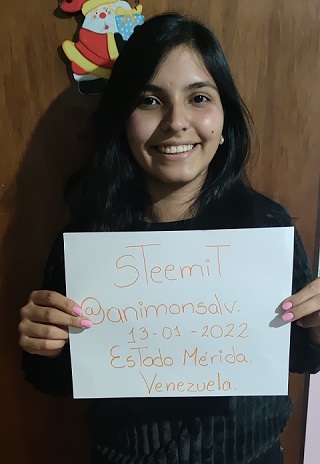 STeemiT.
@animonsalv.
13-01-2022
Estado Mérida.
Venezuela.